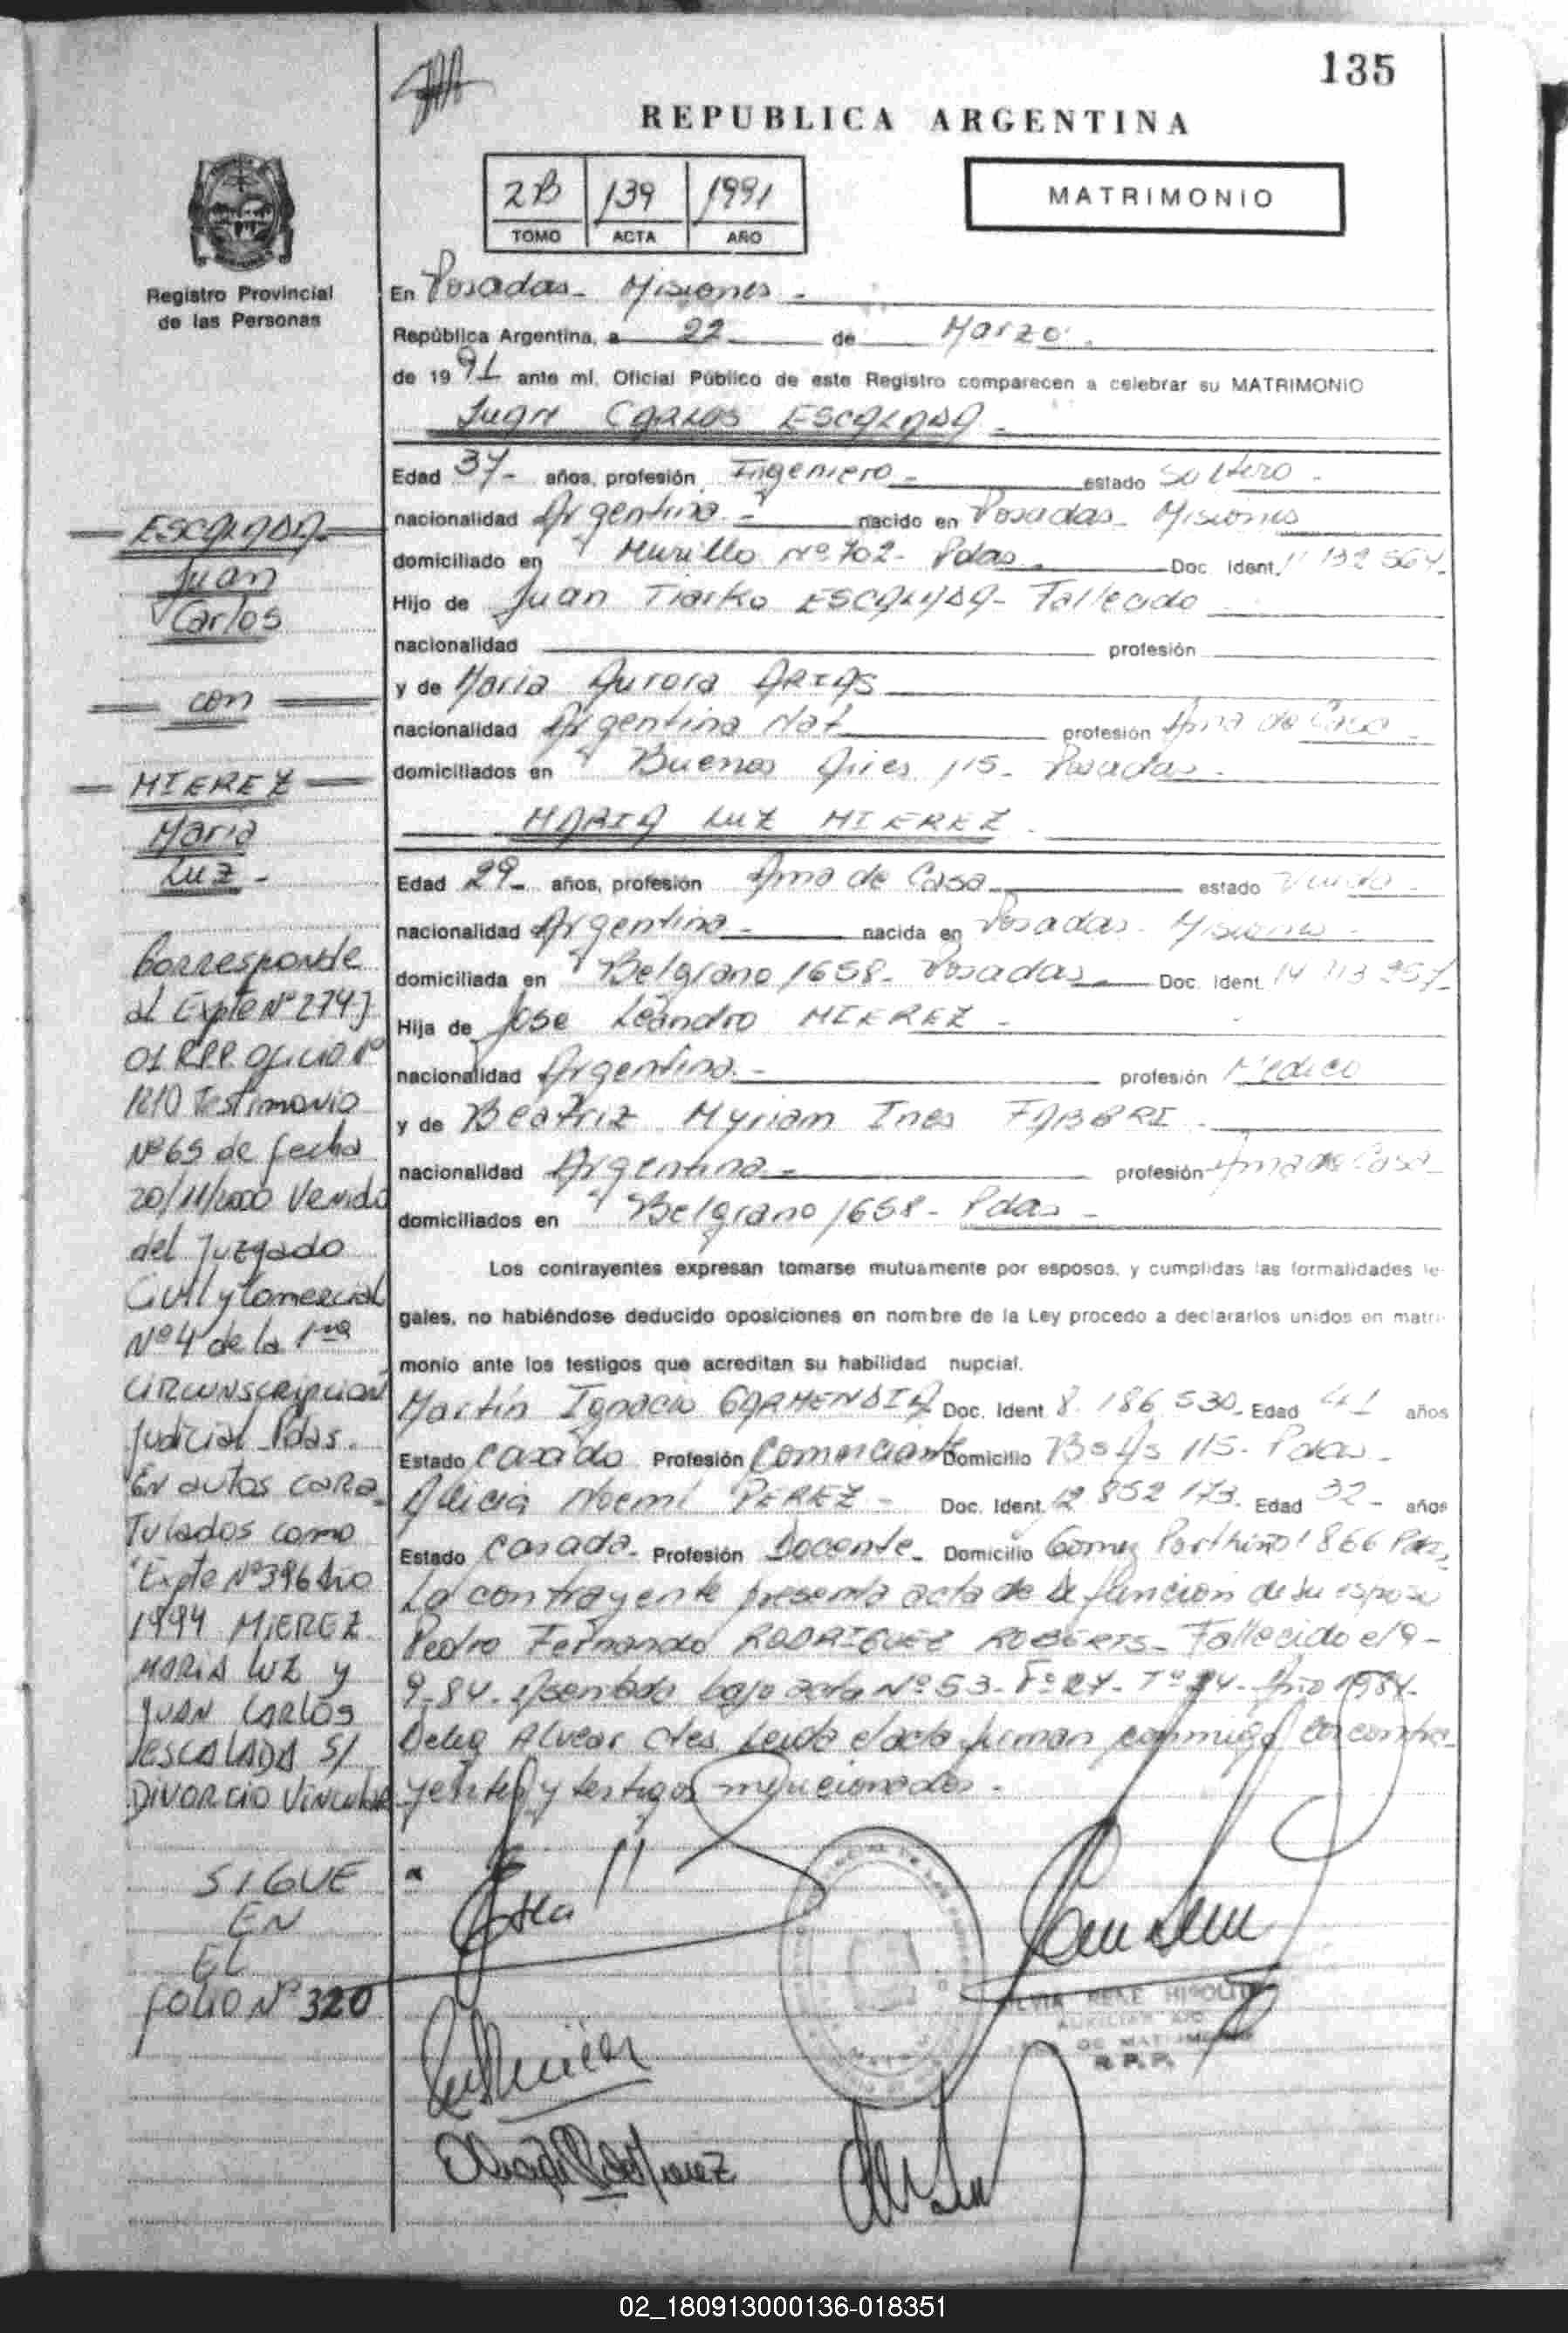 135
REPUBLICA ARGENTINA
2B 139 1991
TOMO ACTA AÑO
MATRIMONIO
Registro Provincial
de las Personas
En Posadas - Misiones -
República Argentina, a 22 de Marzo.
de 1991 ante mí, Oficial Público de este Registro comparecen a celebrar su MATRIMONIO
Juan Carlos ESCALADA -
Edad 37- años, profesión Ingeniero - estado Soltero -
nacionalidad Argentina - nacido en Posadas - Misiones
domiciliado en Murillo Nº 702 - Pdas. Doc. Ident. 11 132 564-
Hijo de Juan Tiarko ESCALADA - Fallecido
nacionalidad profesión
y de Maria Aurora ARIAS
nacionalidad Argentina Nat profesión Ama de Casa
domiciliados en Buenos Aires 115 - Posadas -
MARIA LUZ MIEREZ -
Edad 29- años, profesión Ama de Casa estado Viuda -
nacionalidad Argentina - nacida en Posadas - Misiones -
domiciliada en Belgrano 1658 - Posadas Doc. Ident. 14 713 957-
Hija de Jose Leandro MIEREZ -
nacionalidad Argentina - profesión Medico
y de Beatriz Myriam Ines FABBRI -
nacionalidad Argentina - profesión Ama de Casa -
domiciliados en Belgrano 1658 - Pdas -
Los contrayentes expresan tomarse mutuamente por esposos, y cumplidas las formalidades le-
gales, no habiéndose deducido oposiciones en nombre de la Ley procedo a declararlos unidos en matri-
monio ante los testigos que acreditan su habilidad nupcial.
Martín Ignacio GARMENDIA Doc. Ident. 8.186.530- Edad 41 años
Estado casado Profesión Comerciante Domicilio Bs As 115 - Pdas -
Alicia Noemí PEREZ - Doc. Ident. 12 852 173. Edad 32 - años
Estado casada - Profesión Docente - Domicilio Gomez 1866 Pdas.
La contrayente presenta acta de defuncion de su esposo
Pedro Fernando RODRIGUEZ ROBERTS - Fallecido el 9-
9-84. Asentada bajo acta Nº 53 - Fº 27 - Tº - Año 1984.
Deleg Alvear Ctes Leida el acta firman conmigo los contra-
yentes y testigos mencionados -
ESCALADA
Juan
Carlos
con
MIEREZ
Maria
Luz -
Corresponde
al Expte Nº 274-J
01 RPP. Oficio Nº
1210 Testimonio
Nº 65 de fecha
20/11/2000 Venido
del Juzgado
Civil y Comercial
Nº 4 de la 1ra
Circunscripcion
Judicial Pdas.
En autos cara-
Tulados como
"Expte Nº 396 Año
1994 MIEREZ
MARIA LUZ y
JUAN CARLOS
ESCALADA S/
DIVORCIO Vincular
SIGUE
EN
EL
FOLIO Nº 320
HIPOLITO
DE MATRIMONIO
R. P. P.
02_180913000136-018351